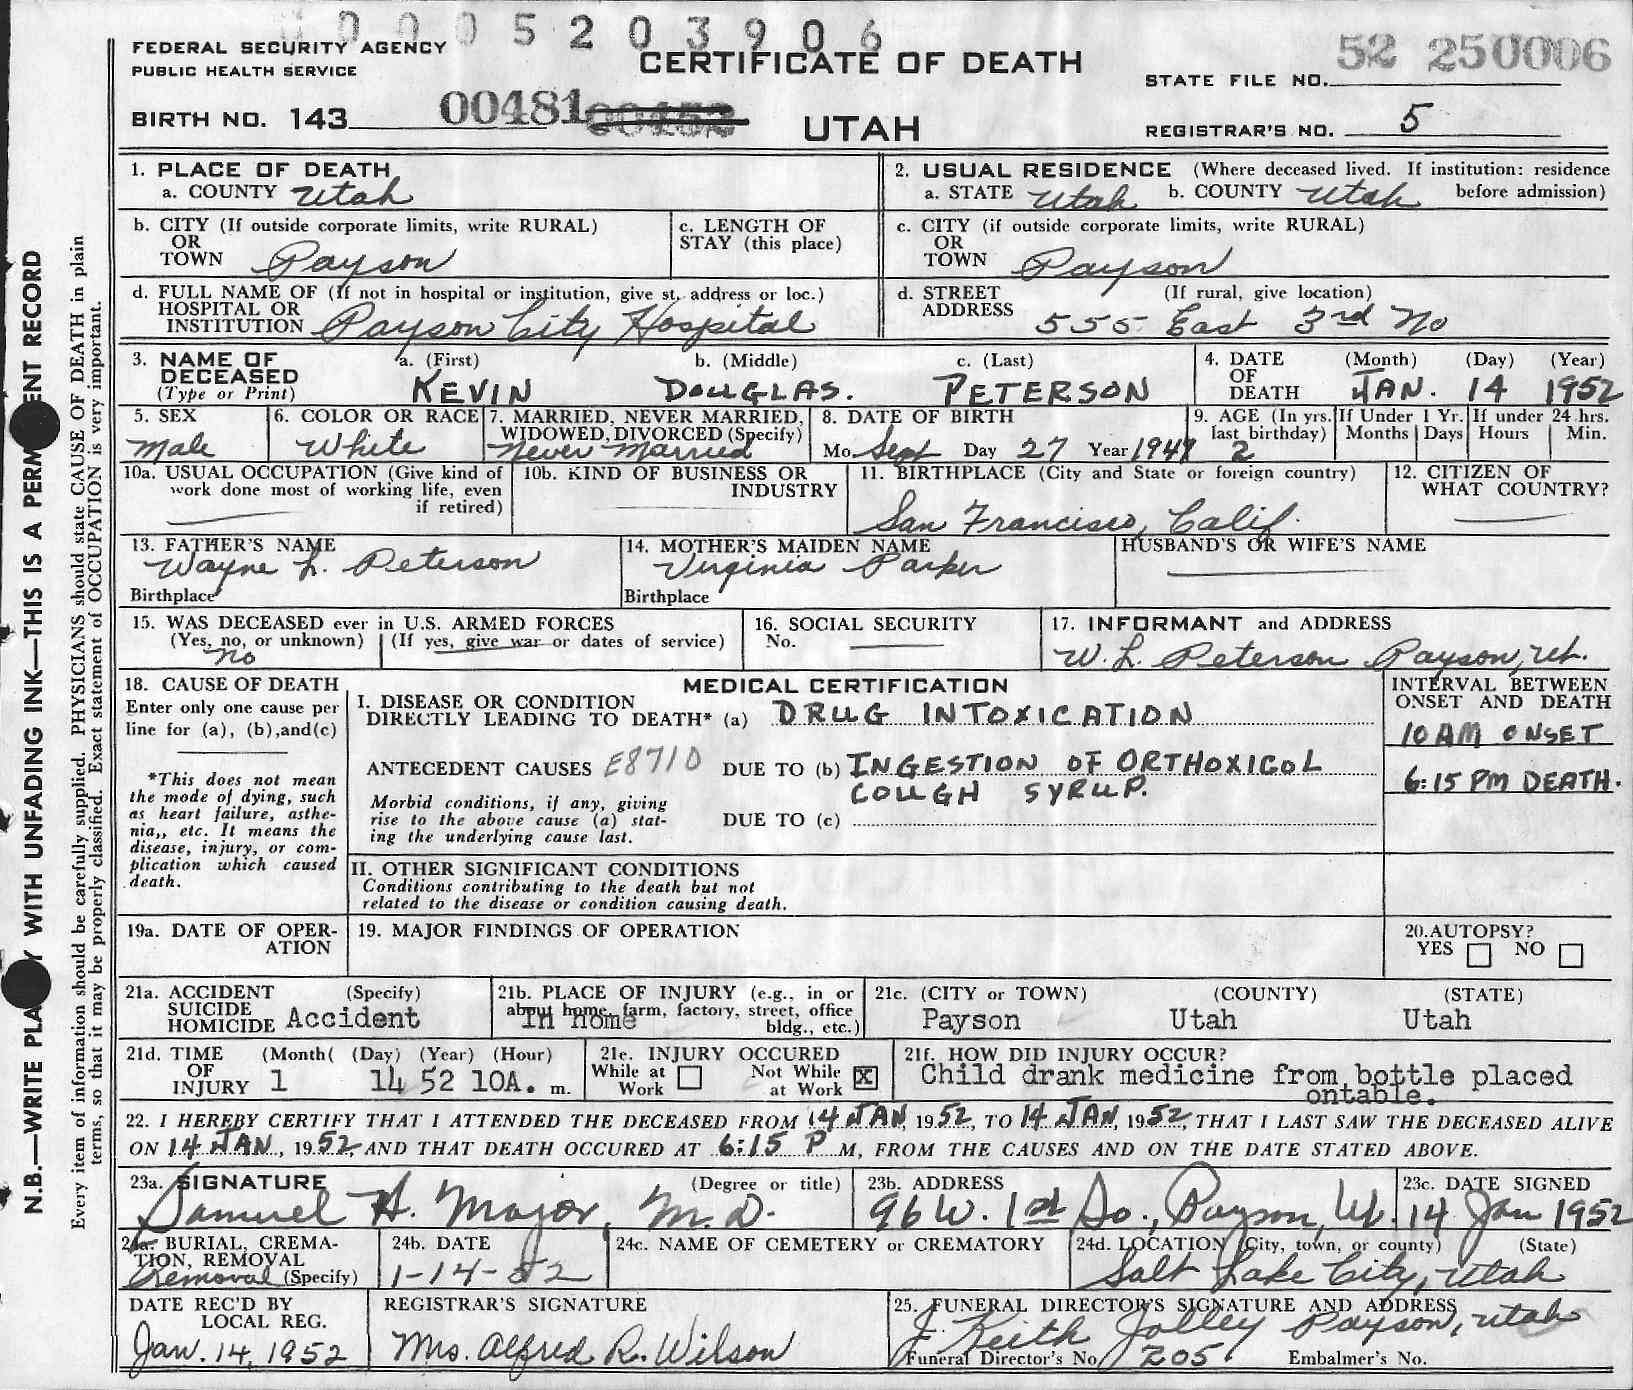 0 0 0 5 2 0 3 9 0 6
FEDERAL SECURITY AGENCY
PUBLIC HEALTH SERVICE
CERTIFICATE OF DEATH
STATE FILE NO. 52 250006
BIRTH NO. 143 00481
UTAH
REGISTRAR'S NO. 5
1. PLACE OF DEATH
a. COUNTY Utah
2. USUAL RESIDENCE (Where deceased lived. If institution: residence before admission)
a. STATE Utah b. COUNTY Utah
b. CITY (If outside corporate limits, write RURAL)
OR
TOWN Payson
c. LENGTH OF
STAY (this place)
c. CITY (if outside corporate limits, write RURAL)
OR
TOWN Payson
d. FULL NAME OF (If not in hospital or institution, give st. address or loc.)
HOSPITAL OR
INSTITUTION Payson City Hospital
d. STREET (If rural, give location)
ADDRESS 555 East 3rd No
3. NAME OF DECEASED (Type or Print)
a. (First) b. (Middle) c. (Last)
KEVIN DOUGLAS. PETERSON
4. DATE OF DEATH (Month) (Day) (Year)
JAN. 14 1952
5. SEX
Male
6. COLOR OR RACE
White
7. MARRIED, NEVER MARRIED,
WIDOWED, DIVORCED (Specify)
Never Married
8. DATE OF BIRTH
Mo Sept Day 27 Year 1949
9. AGE (In yrs. last birthday) 2
If Under 1 Yr. Months Days
If under 24 hrs. Hours Min.
10a. USUAL OCCUPATION (Give kind of
work done most of working life, even
if retired)
10b. KIND OF BUSINESS OR
INDUSTRY
11. BIRTHPLACE (City and State or foreign country)
San Francisco, Calif.
12. CITIZEN OF
WHAT COUNTRY?
13. FATHER'S NAME
Wayne L. Peterson
Birthplace
14. MOTHER'S MAIDEN NAME
Virginia Parker
Birthplace
HUSBAND'S OR WIFE'S NAME
15. WAS DECEASED ever in U.S. ARMED FORCES
(Yes, no, or unknown) (If yes, give war or dates of service)
no
16. SOCIAL SECURITY
No.
17. INFORMANT and ADDRESS
W. L. Peterson Payson, Ut.
18. CAUSE OF DEATH
Enter only one cause per
line for (a), (b), and (c)
*This does not mean
the mode of dying, such
as heart failure, asthe-
nia,, etc. It means the
disease, injury, or com-
plication which caused
death.
MEDICAL CERTIFICATION
I. DISEASE OR CONDITION
DIRECTLY LEADING TO DEATH* (a) DRUG INTOXICATION
ANTECEDENT CAUSES E8710 DUE TO (b) INGESTION OF ORTHOXICOL
COUGH SYRUP.
Morbid conditions, if any, giving
rise to the above cause (a) stat-
ing the underlying cause last.
DUE TO (c)
INTERVAL BETWEEN
ONSET AND DEATH
10 AM ONSET
6:15 PM DEATH.
II. OTHER SIGNIFICANT CONDITIONS
Conditions contributing to the death but not
related to the disease or condition causing death.
19a. DATE OF OPER-
ATION
19. MAJOR FINDINGS OF OPERATION
20. AUTOPSY?
YES NO
21a. ACCIDENT (Specify)
SUICIDE
HOMICIDE Accident
21b. PLACE OF INJURY (e.g., in or
about home, farm, factory, street, office
bldg., etc.)
In home
21c. (CITY or TOWN) (COUNTY) (STATE)
Payson Utah Utah
21d. TIME OF INJURY (Month( (Day) (Year) (Hour)
1 14 52 10A. m.
21e. INJURY OCCURED
While at Work Not While at Work X
21f. HOW DID INJURY OCCUR?
Child drank medicine from bottle placed
ontable.
22. I HEREBY CERTIFY THAT I ATTENDED THE DECEASED FROM 14 JAN, 1952, TO 14 JAN, 1952, THAT I LAST SAW THE DECEASED ALIVE
ON 14 JAN, 1952, AND THAT DEATH OCCURED AT 6:15 P M, FROM THE CAUSES AND ON THE DATE STATED ABOVE.
23a. SIGNATURE (Degree or title)
Samuel H. Major, M.D.
23b. ADDRESS
96 W. 1st So., Payson, Ut.
23c. DATE SIGNED
14 Jan 1952
24a. BURIAL, CREMA-
TION, REMOVAL
Removal (Specify)
24b. DATE
1-14-52
24c. NAME OF CEMETERY or CREMATORY
24d. LOCATION (City, town, or county) (State)
Salt Lake City, Utah
DATE REC'D BY
LOCAL REG.
Jan. 14, 1952
REGISTRAR'S SIGNATURE
Mrs. Alfred R. Wilson
25. FUNERAL DIRECTOR'S SIGNATURE AND ADDRESS
J. Keith Jolley Payson, Utah
Funeral Director's No 205 Embalmer's No.
N.B.—WRITE PLA Y WITH UNFADING INK—THIS IS A PERM ENT RECORD
Every item of information should be carefully supplied. PHYSICIANS should state CAUSE OF DEATH in plain
terms, so that it may be properly classified. Exact statement of OCCUPATION is very important.